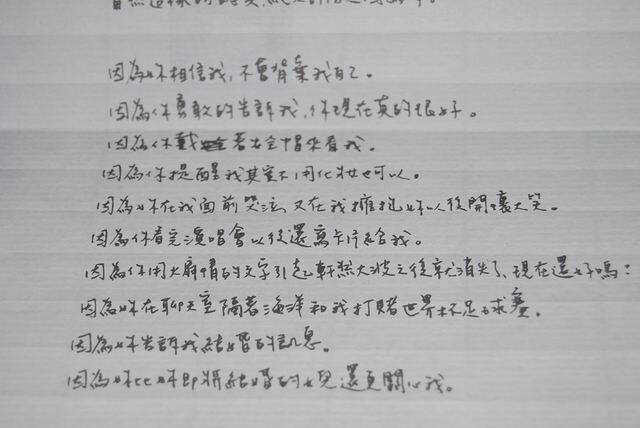 因為妳相信我,不會背棄我自己。
因為你勇敢的告訴我,你現在真的很好。
因為你戴著安全帽來看我。
因為你提醒我其實不用化妝也可以。
因為妳在我面前哭泣,又在我擁抱妳以後開懷大笑。
因為你看完演唱會以後還寫卡片給我。
因為你用大膽的文字引起軒然大波之後就消失了,現在還好嗎?
因為妳在聊天室隔著海洋和我打賭世界杯足球賽。
因為妳告訴我結婚的訊息。
因為妳比妳即將結婚的女兒還更關心我。